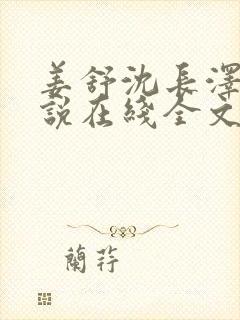 姜舒沈長澤
說在綫全文
蘭莊